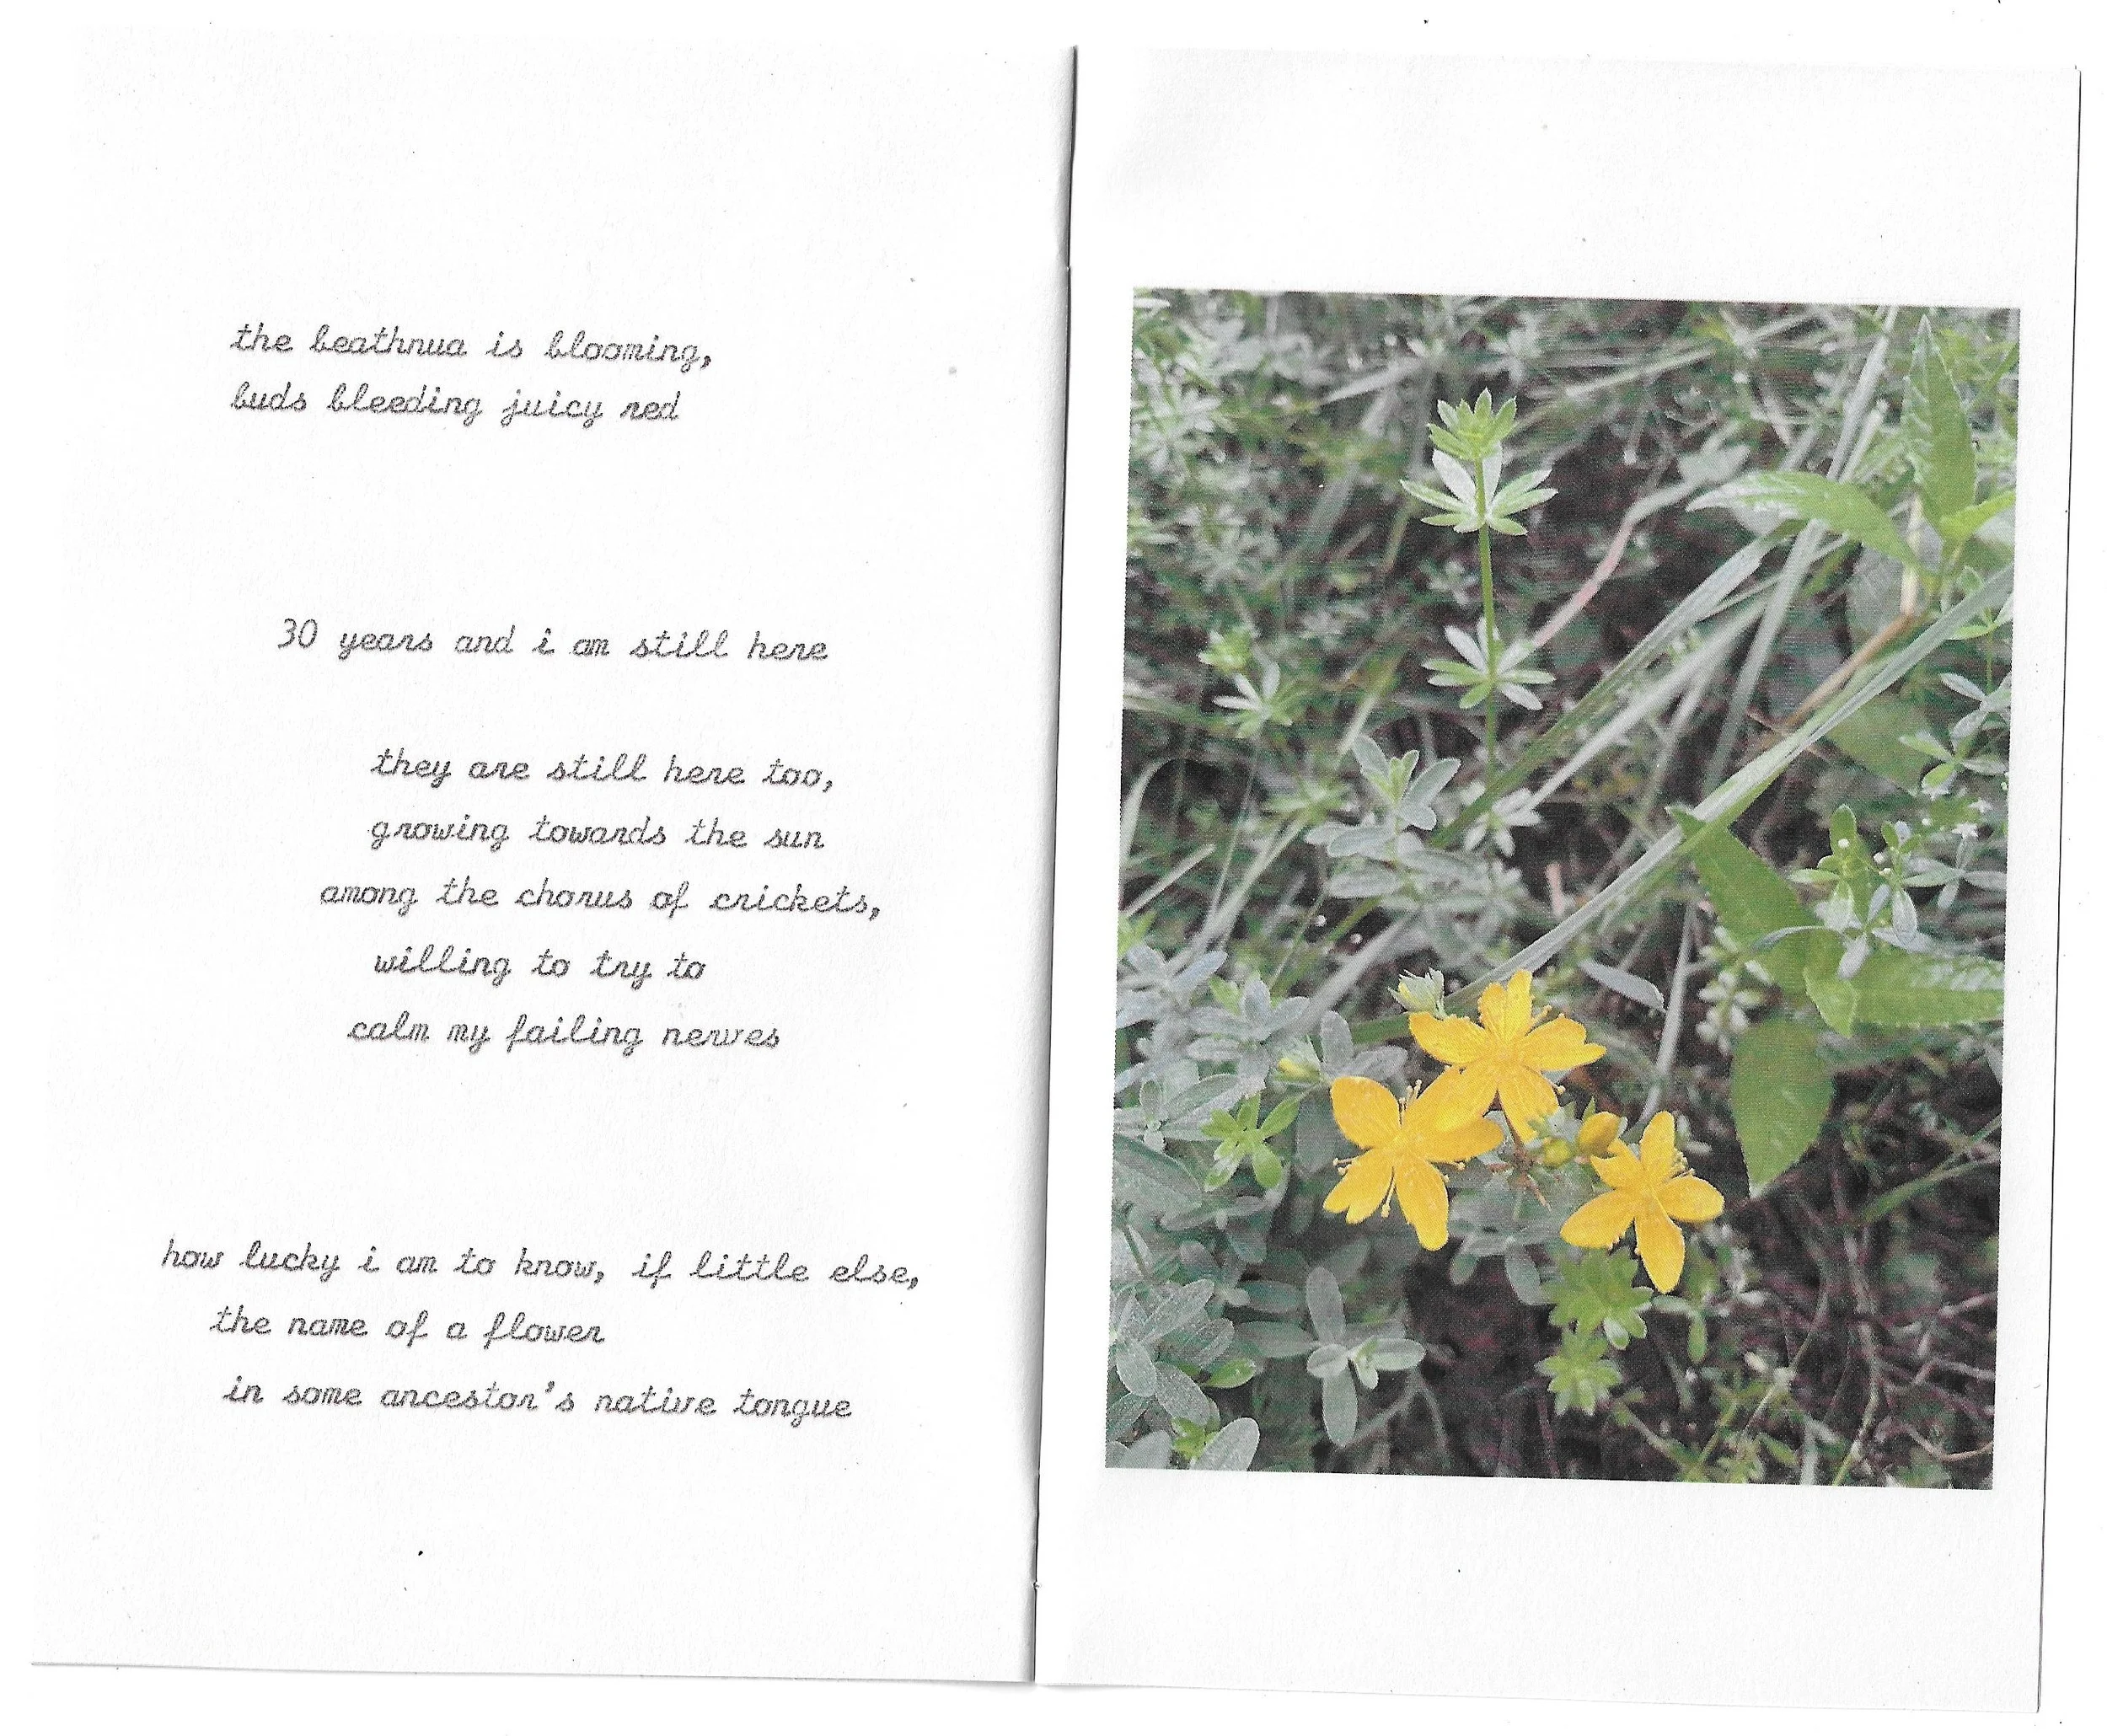 the beathnua is blooming,
buds bleeding juicy red
30 years and i am still here
they are still here too,
growing towards the sun
among the chorus of crickets,
willing to try to
calm my failing nerves
how lucky i am to know, if little else,
the name of a flower
in some ancestor's native tongue